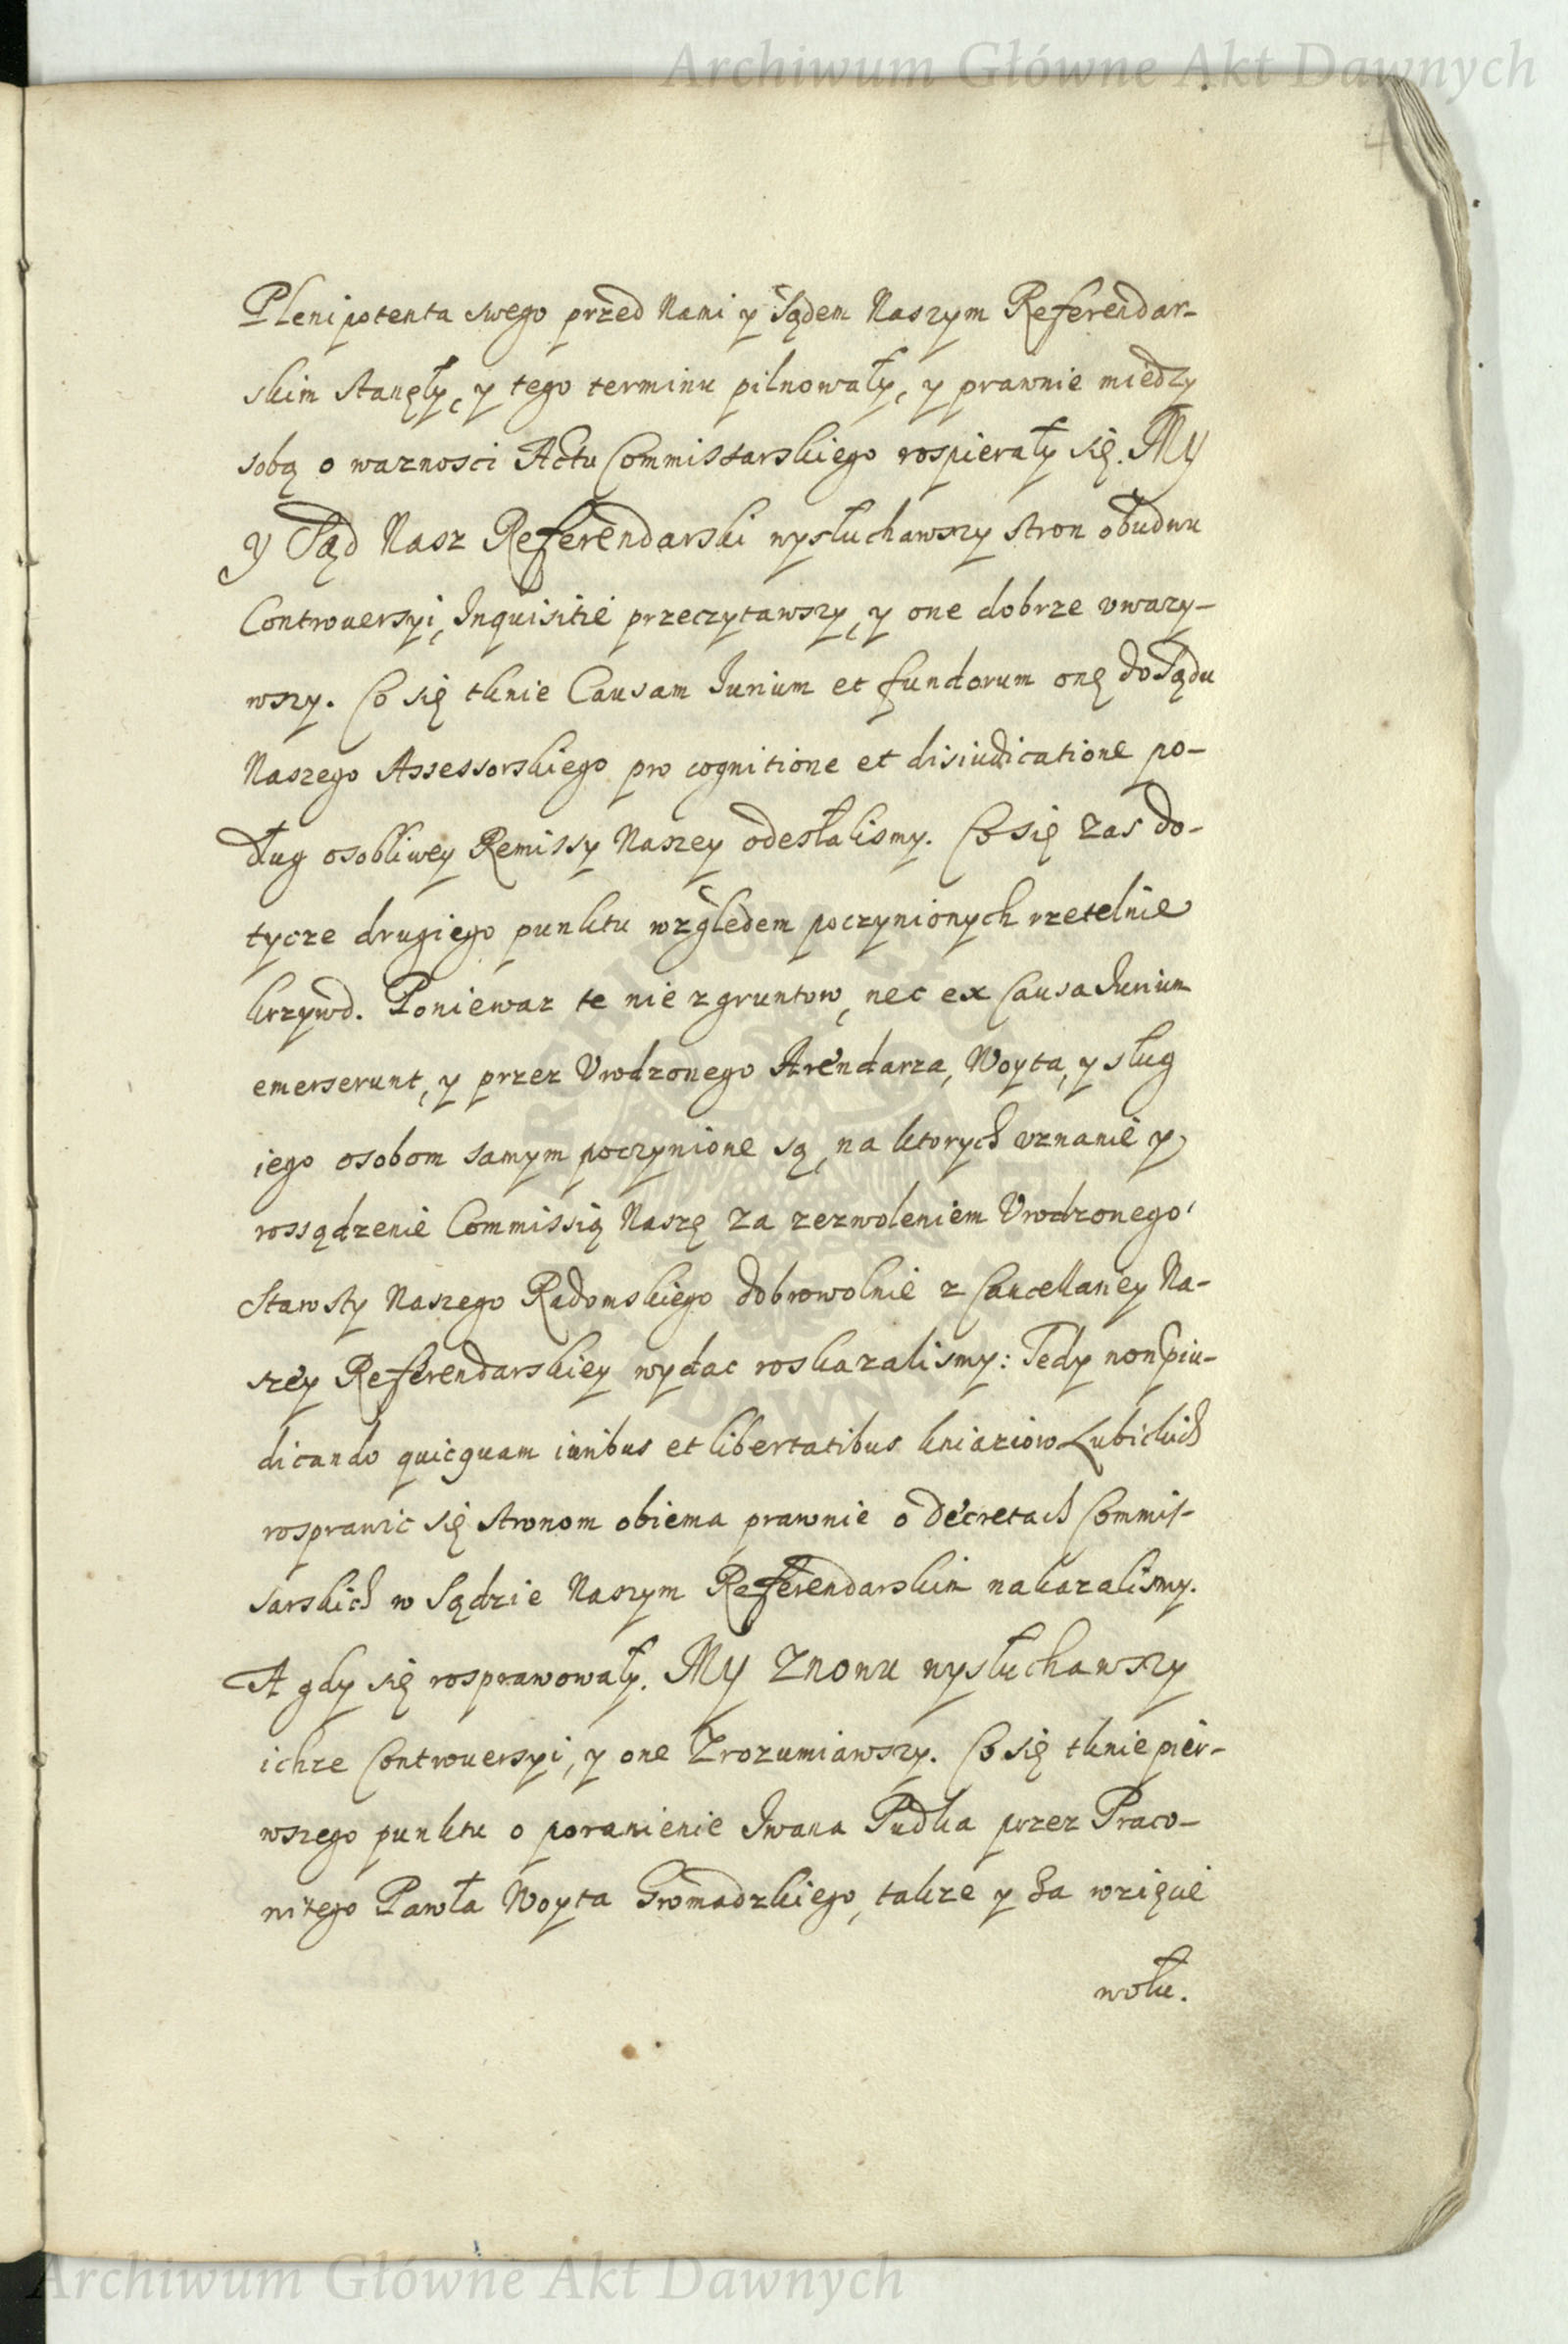 Archiwum Główne Akt Dawnych
4
Plenipotenta swego przed Nami y Sądem Naszym Referendar-
skim stanęły, y tego terminu pilnowały, y prawnie miedzy
sobą o waznosci Actu Commissarskiego rospierały się. My
y Sąd Nasz Referendarski wysłuchawszy stron obudwu
Controuersyi, Inquisitie przeczytawszy, y one dobrze vwazy-
wszy. Co się tknie Causam Iurium et fundorum onę do Sądu
Naszego Assessorskiego pro cognitione et disiudicatione po-
dług osobliwey Remissy Naszey odesłalismy. Co się zas do-
tycze drugiego punktu względem poczynionych rzetelnie
krzywd. Poniewaz te nie z gruntow, nec ex Causa Iurium
emerserunt, y przez Vrodzonego Arendarza, Woyta, y sług
iego osobom samym poczynione są, na ktorych vznanie y
rossądzenie Commissią Naszę za zezwoleniem Vrodzonego
Starosty Naszego Radomskiego dobrowolnie z Cancellariey Na-
szey Referendarskiey wydac roskazalismy: Tedy non p̱iu-
dicando quicquam iuribus et libertatibus kniaziow Lubickich
rosprawic się stronom obiema prawnie o decretach Commis-
sarskich w Sądzie Naszym Referendarskim nakazalismy.
A gdy się rosprawowały. My Znowu wysłuchawszy
ichze Controuersyi, y one Zrozumiawszy. Co się tknie pier-
wszego punktu o poranienie Iwana Pudka przez Praco-
witego Pawła Woyta Gromadzkiego, takze y Za wzięcie
wołu.
Archiwum Główne Akt Dawnych